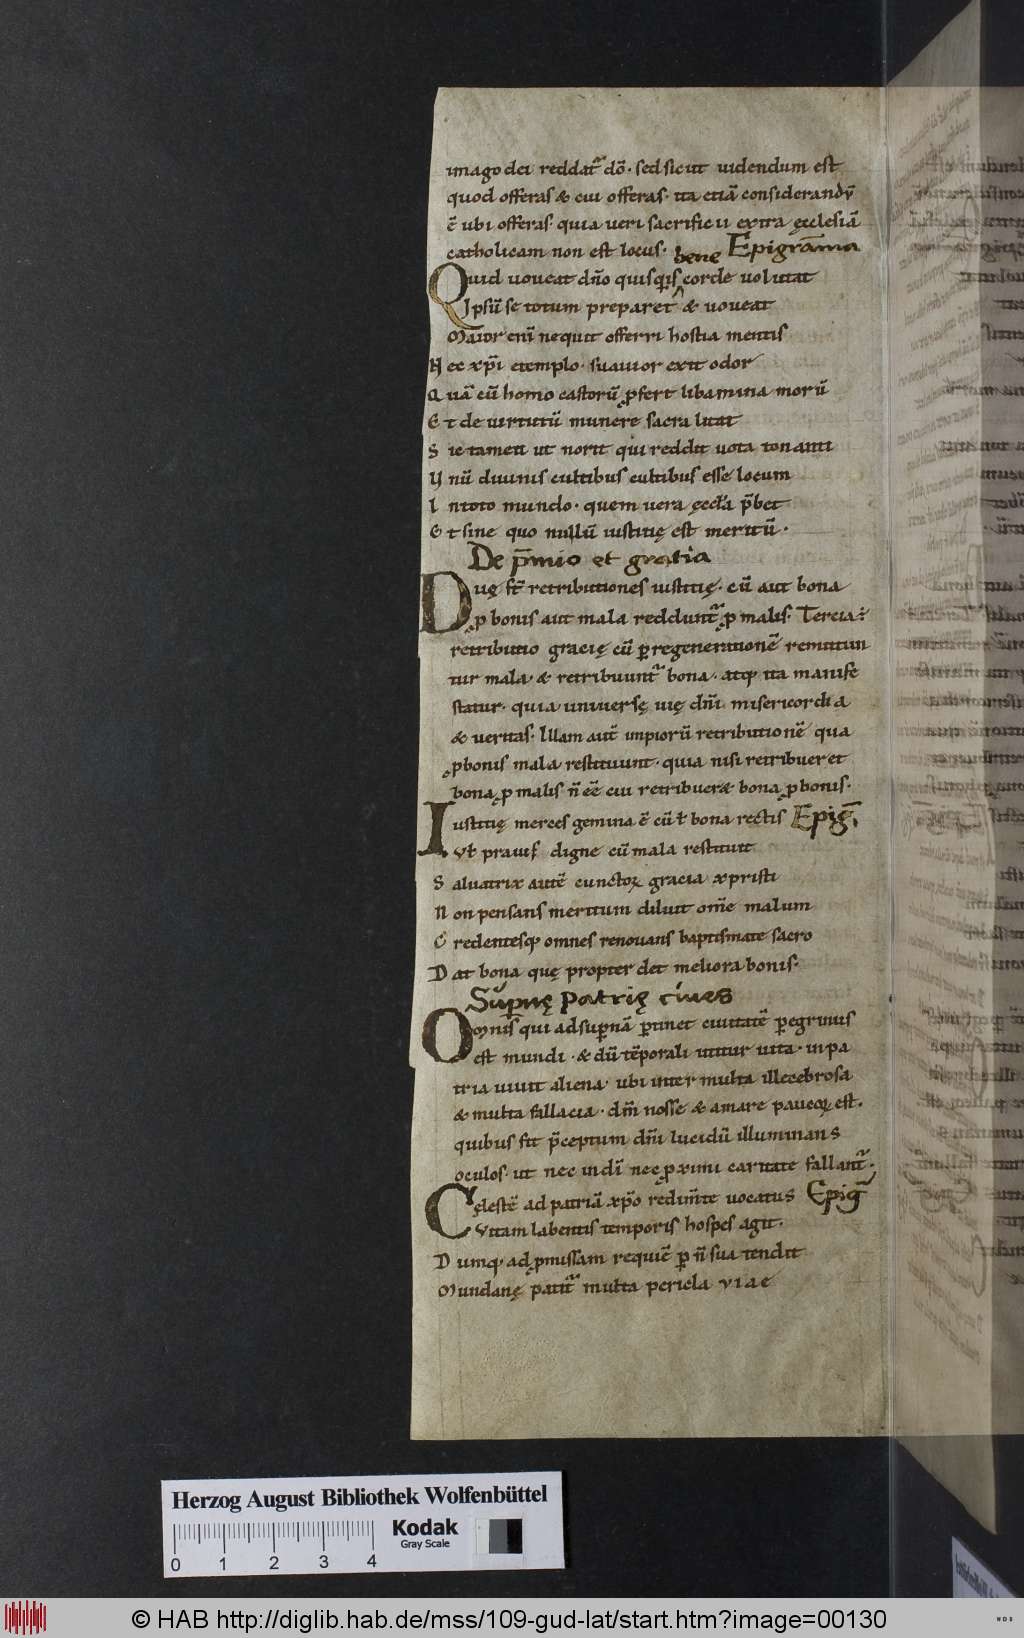 imago dei reddat᷑ dō· sed sicut uidendum est
quod offeras & cui offeras· ita etiā considerandū
ē ubi offeras· quia ueri sacrificii extra ęcclesiā
catholicam non est locus· bene Epigrāma
Quid uoueat dño quisquis corde uolutat
Ipsū se totum preparet & uoueat
Maior eni nequit offerri hostia mentis
Nec xp̄i templo· suauior exit odor
Quā cū homo castorū ꝓfert libamina morū
Et de uirtutū munere sacra litat
Sic tamen ut norit qui reddit uota tonanti
Vnū diuinis cultibus cultibus esse locum
In toto mundo· quem uera ęccl̄a p̄bet
Et sine quo nullū iustitię est meritū·
De p̄mio et gratia
Duę st̄ retributiones iustitię· cū aut bona
ꝓ bonis aut mala reddunt᷑ ꝓ malis· Tercia ÷
retributio gracię cū ꝑ regenerationē remittun
tur mala· & retribuunt᷑ bona· atq; ita manife
statur· quia uniuersę uię dn̄i misericordia
& ueritas· Illam aut̄ impiorū retributionē qua
ꝓ bonis mala restituunt· quia nisi retribueret
bona ꝓ malis n̄ eē cui retribueret bona ꝓ bonis·
Iustitię merces gemina ē cū ł bona rectis Epiḡ
Vł prauis digne cū mala restituit
Saluatrix autē cunctoꝝ gracia xpristi
Non pensans meritum diluit om̄e malum
Credentesq; omnes renouans baptismate sacro
Dat bona quę propter det meliora bonis·
Suꝑnę patrię ciues
Omnis qui ad suꝑnā ꝑtinet ciuitatē ꝑegrinus
est mundi· & dū tēporali utitur uita· in pa
tria uiuit aliena· ubi inter multa illecebrosa
& multa fallacia· dm̄ nosse & amare paucoꝝ est·
quibus fit p̄ceptum dn̄i lucidū illuminans
oculos· ut nec in di nec ꝓximi caritate fallant᷑·
Cęlestē ad patriā xp̄o redim̄te uocatus Epiḡ
Vitam labentis temporis hospes agit·
Dumq; ad ꝓmissam requiē ꝑ n̄ sua tendit
Mundanę patit᷑ multa pericla viae
Herzog August Bibliothek Wolfenbüttel
0 1 2 3 4
Kodak
Gray Scale
© HAB http://diglib.hab.de/mss/109-gud-lat/start.htm?image=00130